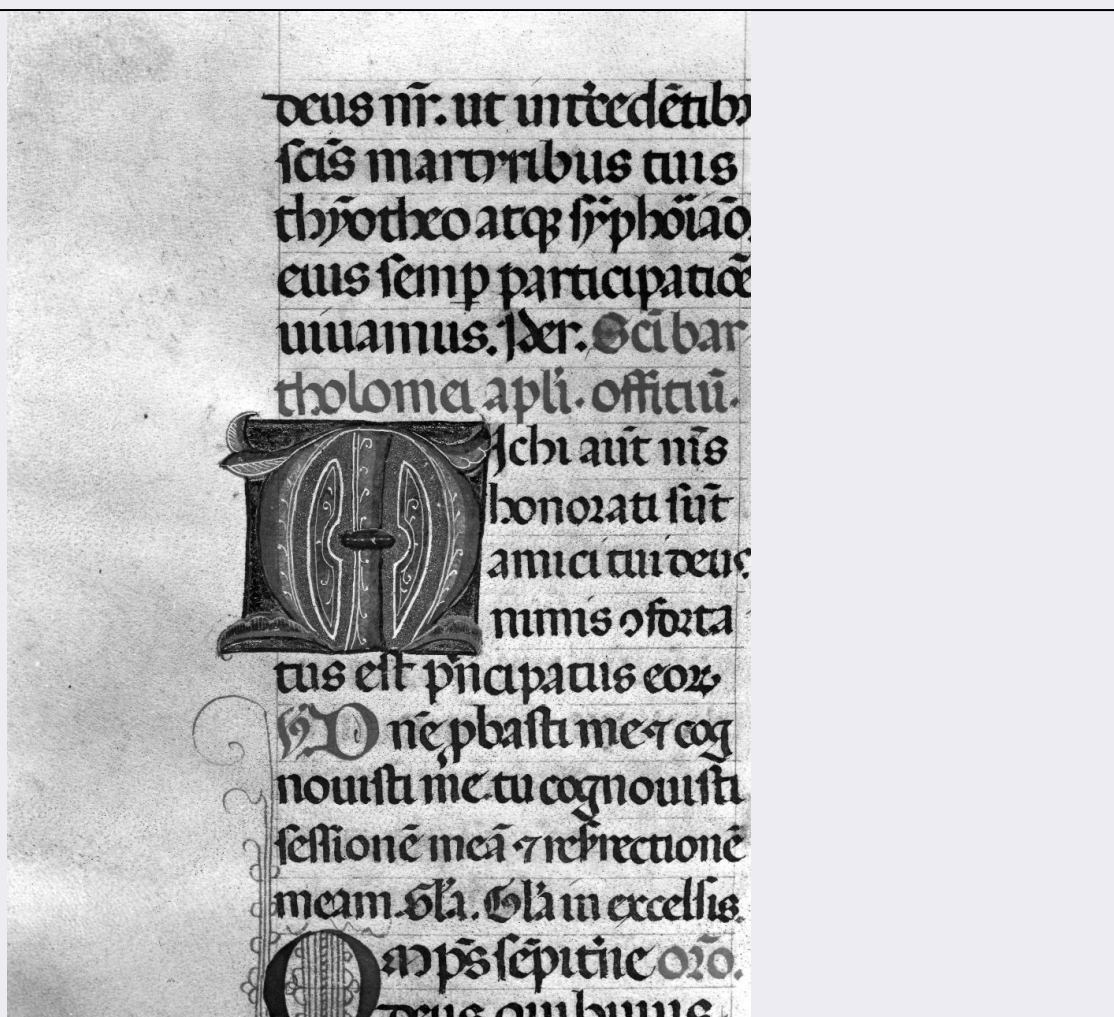 deus nr̄. ut int̾cedētibꝫ
sc̄is martyribus tuis
thȳotheo atqꝫ sȳphōiāo.
eius semꝑ participatiōe
uiuamus. Per. Sc̄i bar
tholomei apl̄i. offitiū.
MIchi aūt nīs
honorati sūt
amici tui deus
nimis ꝯforta
tus est pⁱncipatus eoꝝ
Dn̄e ꝓbasti me ⁊ cog
nouisti me tu cognouisti
sessionē meā ⁊ resr̄rectionē
meam. Gl̄a. Gl̄a in excelsis
Omp̄s sēpit̾ne orō.
deus qui huius